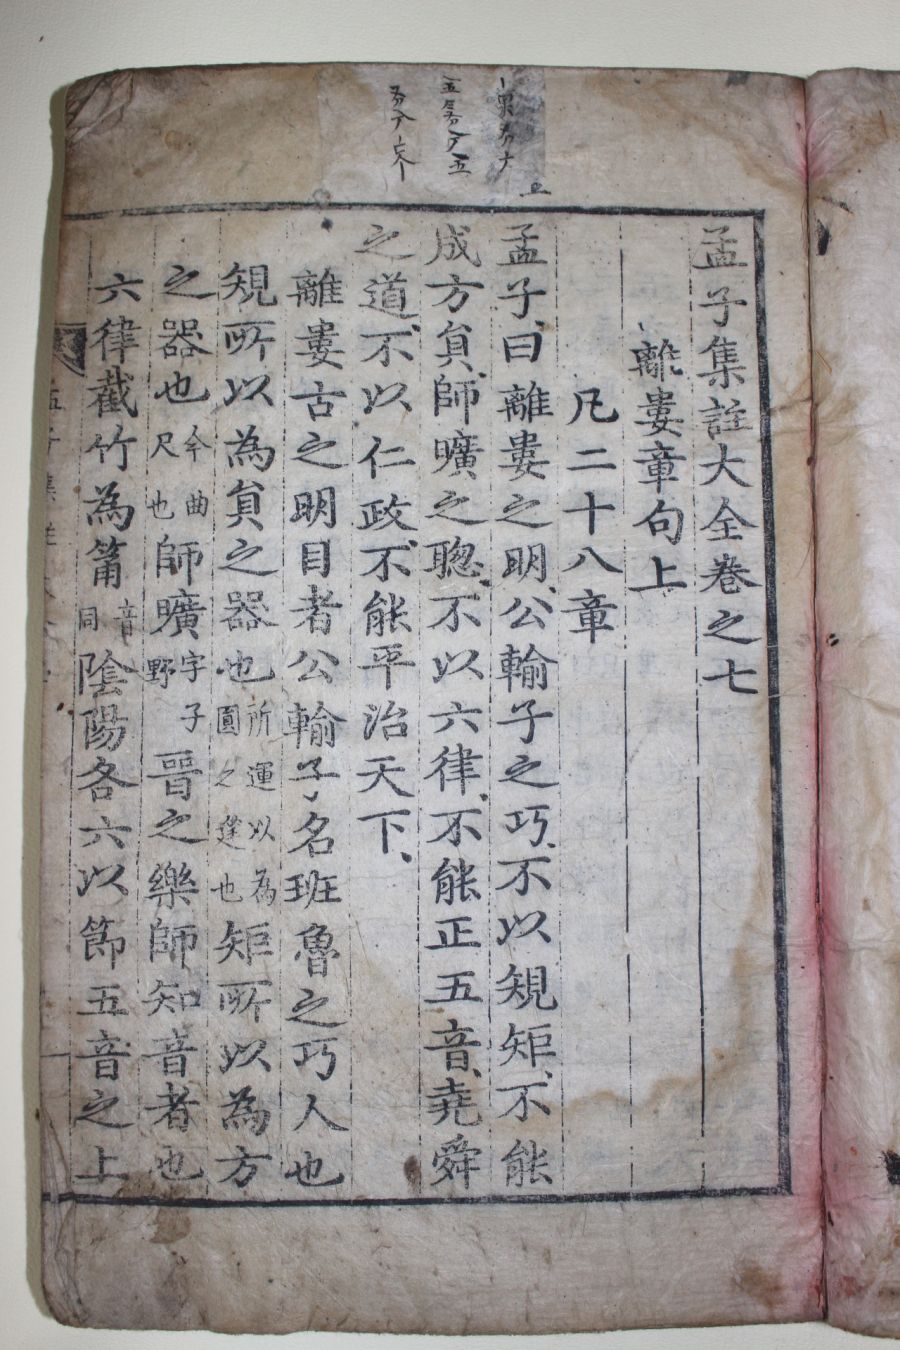 孟子集註大全卷之七
離婁章句上
凡二十八章
孟子曰離婁之明、公輸子之巧、不以規矩、不能
成方貟、師曠之聰、不以六律、不能正五音、堯舜
之道、不以仁政、不能平治天下、
離婁古之明目者公輸子名班魯之巧人也
規所以為貟之器也所運以為圓之䇄也矩所以為方
之器也今曲尺也師曠字子野晉之樂師知音者也
六律截竹為筩音同陰陽各六以節五音之上
孟子集註